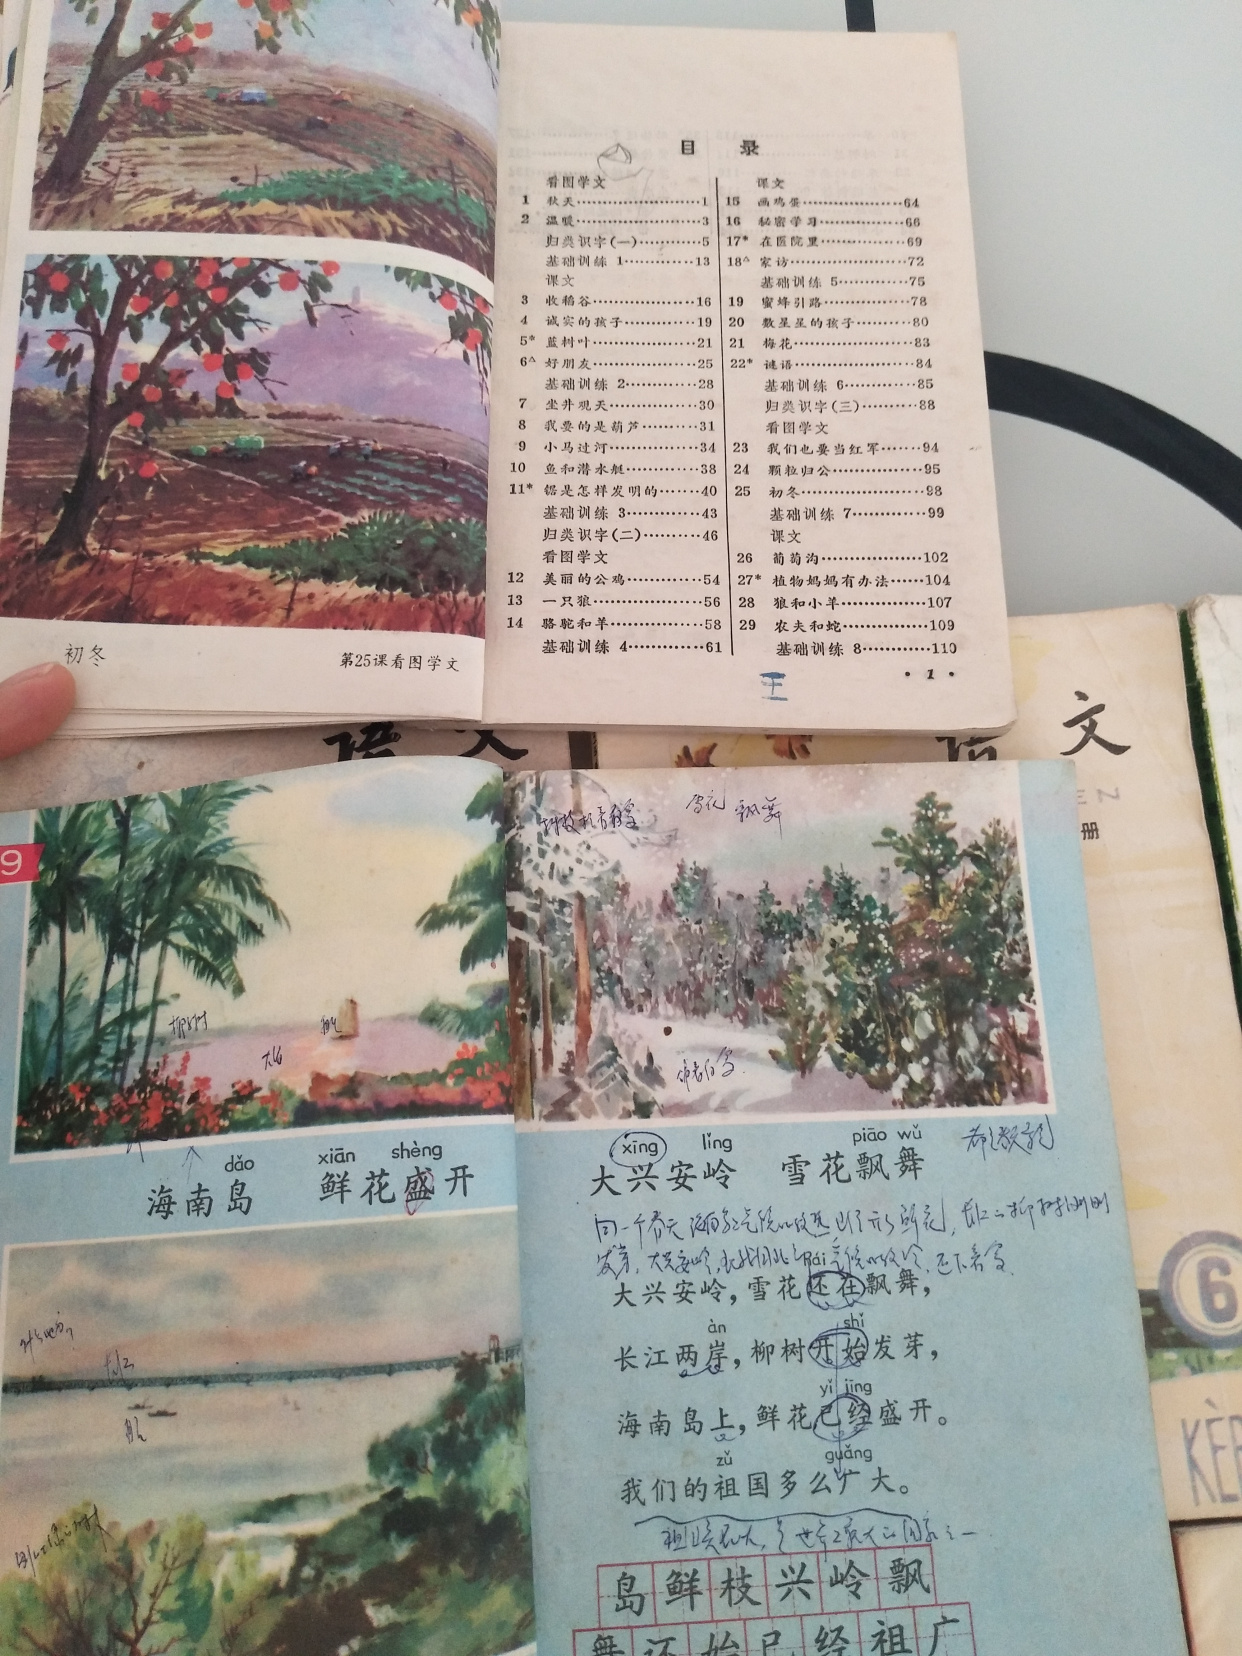 目 录
看图学文
1 秋天 1
2 温暖 3
归类识字(一) 5
基础训练 1 13
课文
3 收稻谷 16
4 诚实的孩子 19
5* 蓝树叶 21
6△ 好朋友 25
基础训练 2 28
7 坐井观天 30
8 我要的是葫芦 31
9 小马过河 34
10 鱼和潜水艇 38
11* 锯是怎样发明的 40
基础训练 3 43
归类识字(二) 46
看图学文
12 美丽的公鸡 54
13 一只狼 56
14 骆驼和羊 58
基础训练 4 61
课文
15 画鸡蛋 64
16 秘密学习 66
17* 在医院里 69
18△ 家访 72
基础训练 5 75
19 蜜蜂引路 78
20 数星星的孩子 80
21 梅花 83
22* 谜语 84
基础训练 6 85
归类识字(三) 88
看图学文
23 我们也要当红军 94
24 颗粒归公 95
25 初冬 98
基础训练 7 99
课文
26 葡萄沟 102
27* 植物妈妈有办法 104
28 狼和小羊 107
29 农夫和蛇 109
基础训练 8 110
• 1 •
初冬
第25课看图学文
语文
语文
册
9
雪花 飘舞
柳树
船
dǎo xiān shèng
海南岛 鲜花盛开
xīng lǐng piāo wǔ
大兴安岭 雪花飘舞
hái
大兴安岭，雪花还在飘舞，
àn shǐ
长江两岸，柳树开始发芽，
yǐ jīng
海南岛上，鲜花已经盛开。
zǔ guǎng
我们的祖国多么广大。
长江
船
岛鲜枝兴岭飘
舞还始已经祖广
6
KÈB